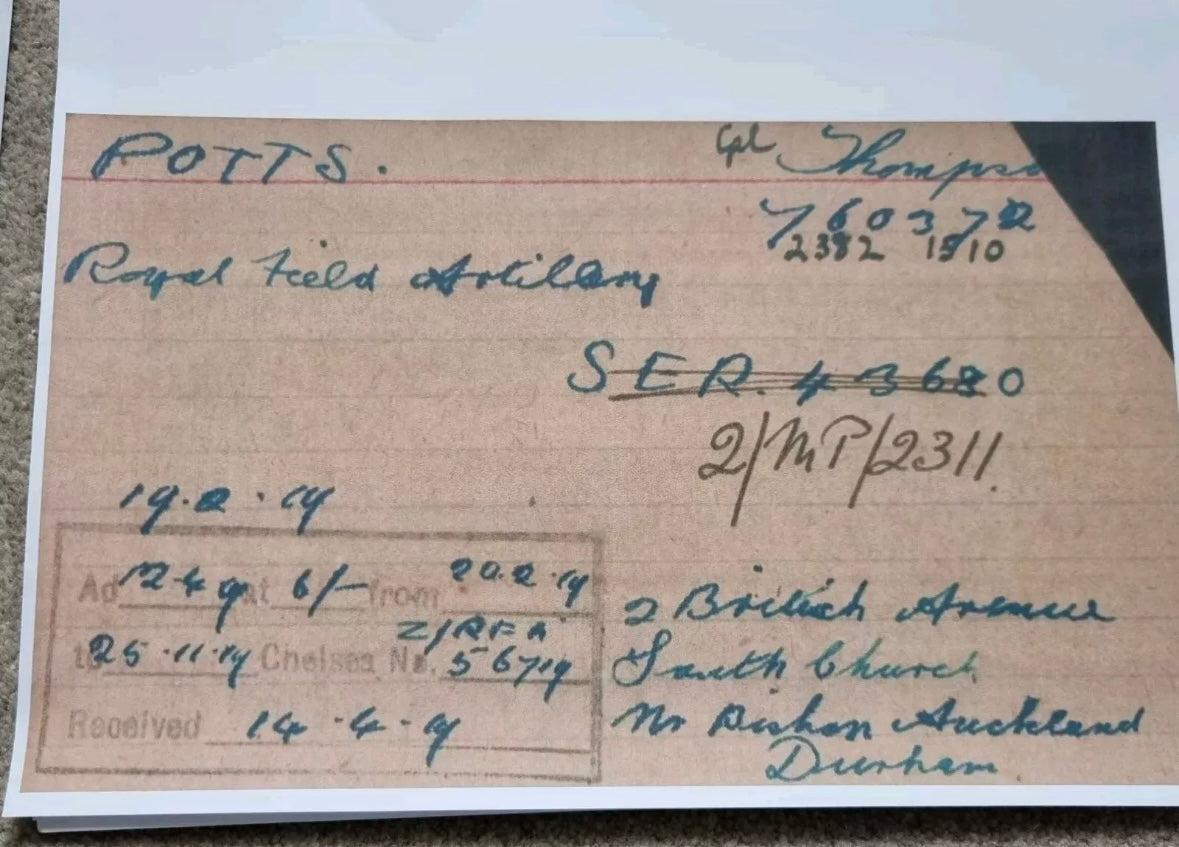 POTTS. Cpl Thompso
760372
2382 1510
Royal Field Artillery
SER. 43680
2/MP/2311.
19.2.19
Ad 12.4.19 at 6/- from 20.2.19
Z/RFA
to 25.11.19 Chelsea No. 567/19
Received 14.4.19
2 British Avenue
South Church
Nr Bishop Auckland
Durham